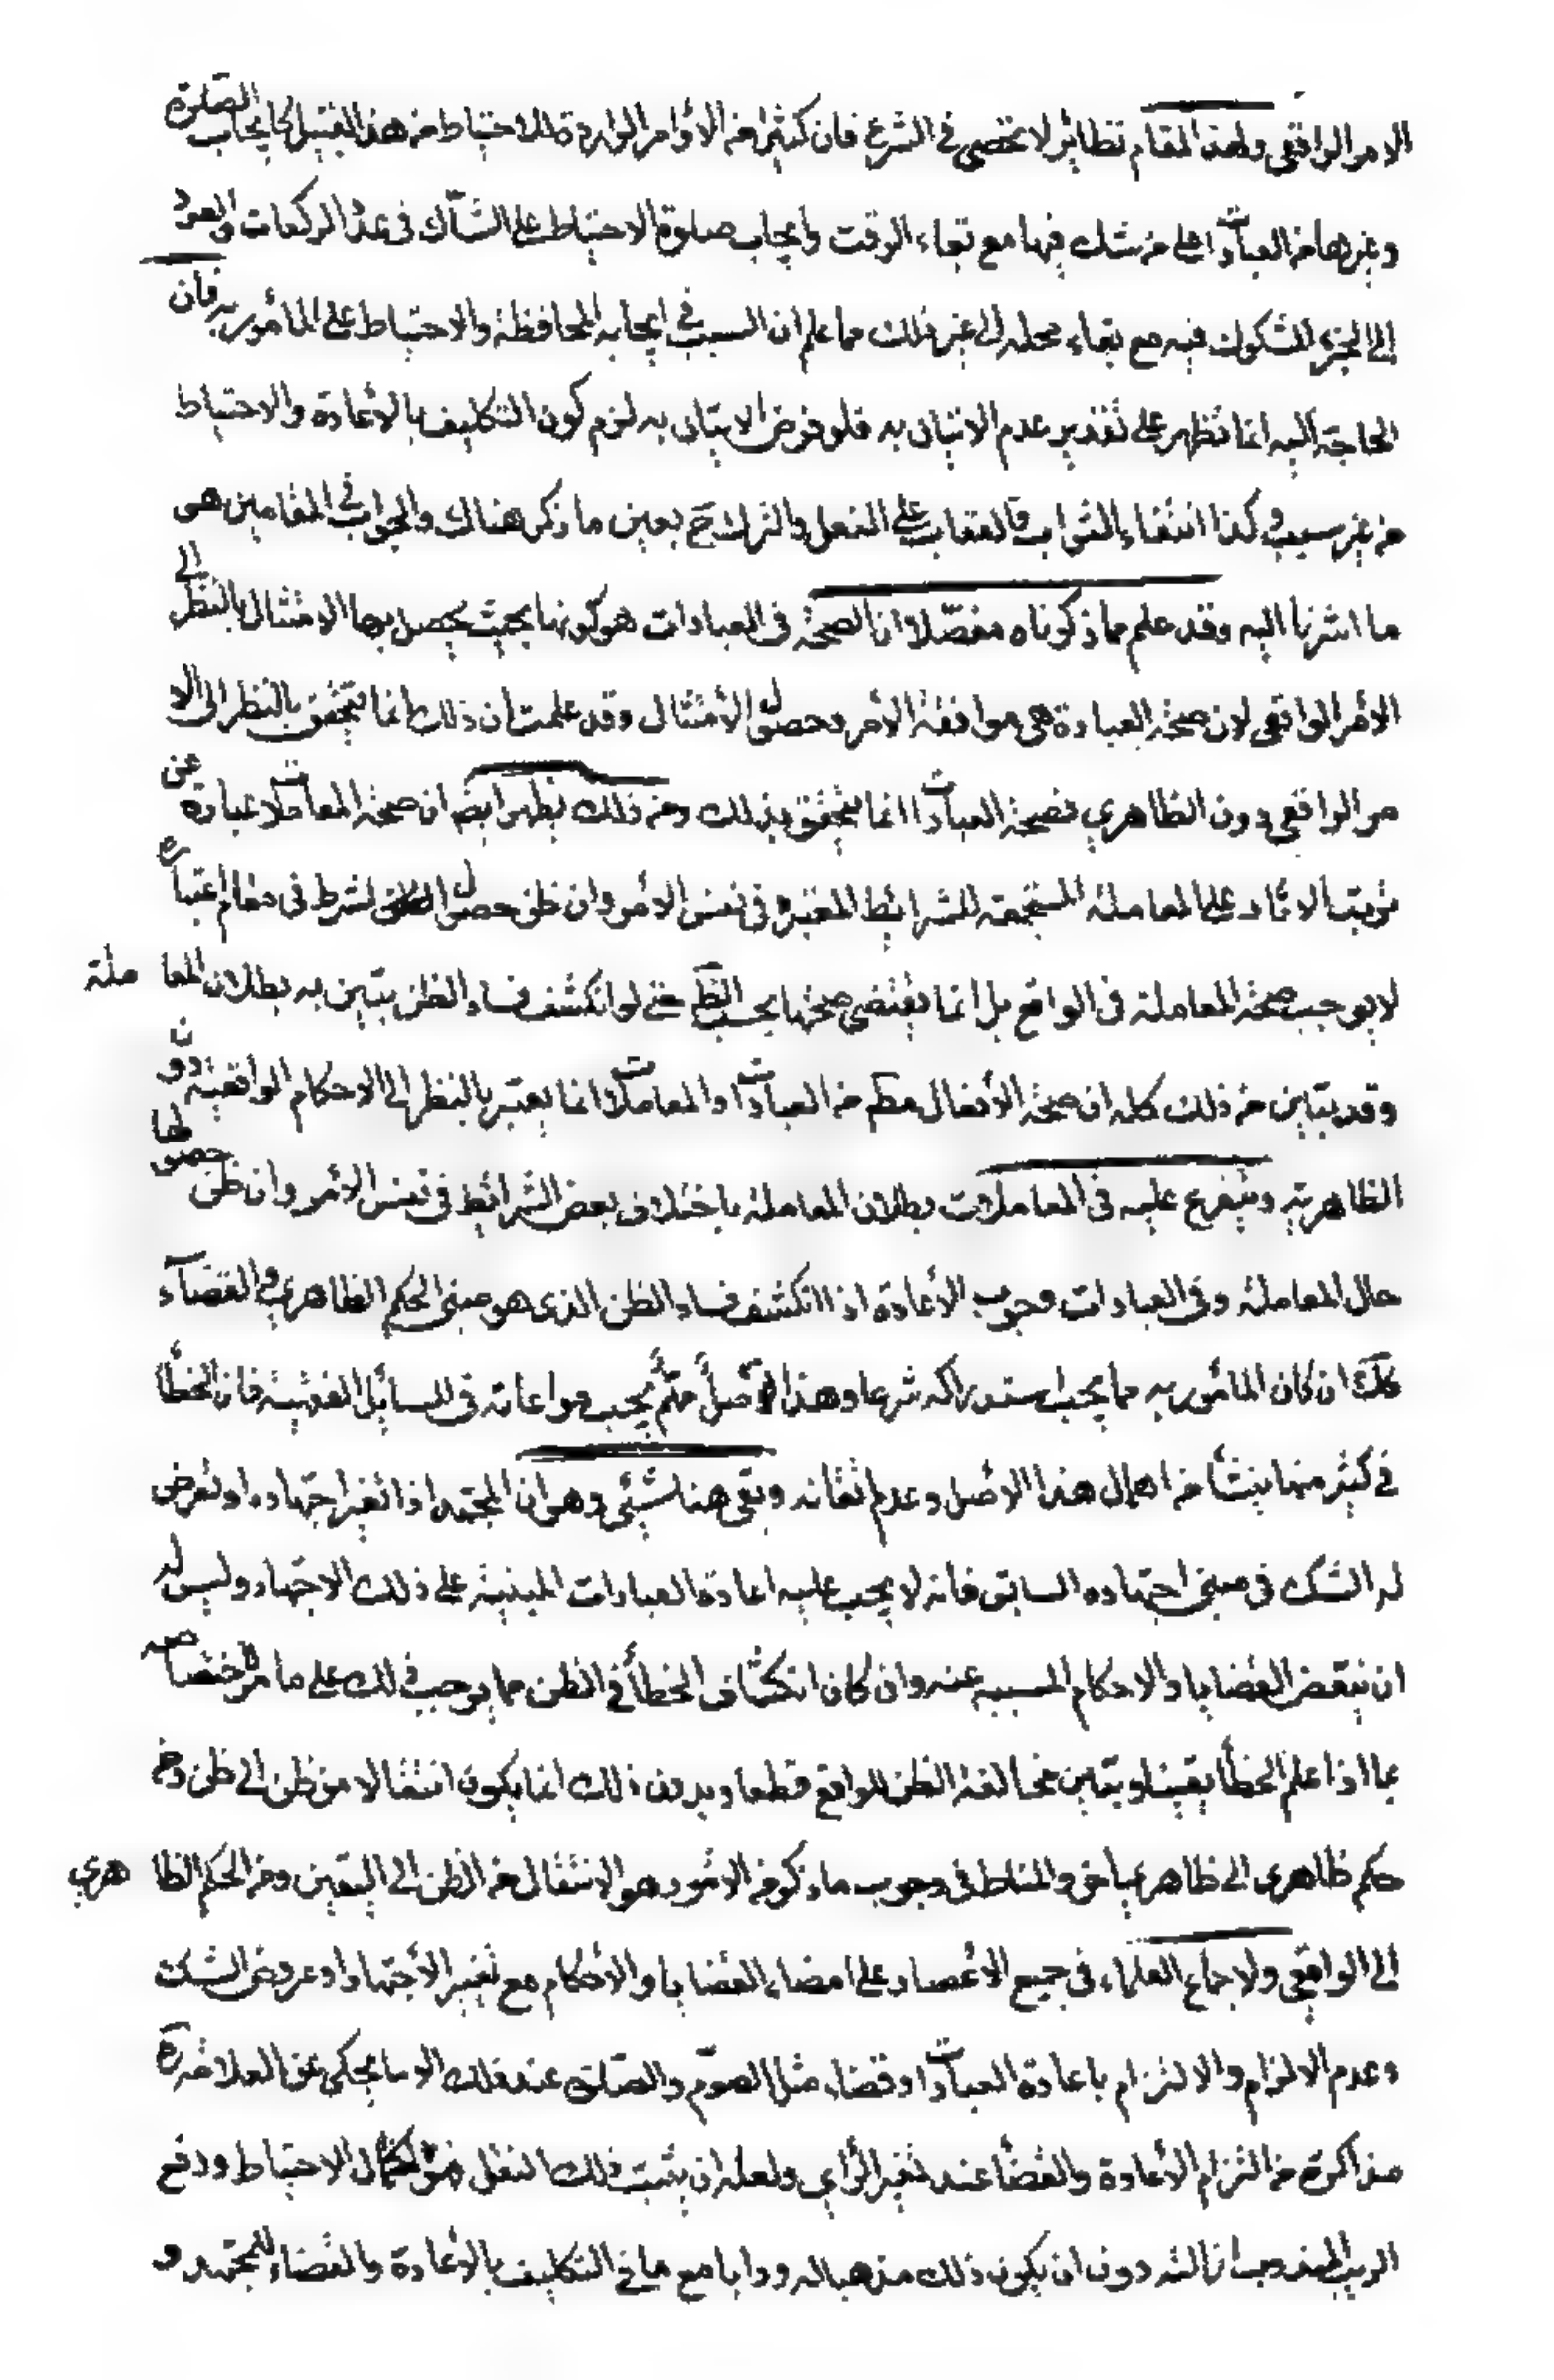 الامر الواقعى ولهذا المقام نظائر لا تحصى فى الشرع فان كثيرا من الأوامر الواردة للاحتياط من هذا القبيل كايجاب الصلوة
وغيرها من العبادات على من شك فيها مع بقاء الوقت وايجاب صلوة الاحتياط على الشاك فى عدد الركعات والعود
الى الجزء المشكوك فيه مع بقاء محله الى غير ذلك مما علم ان السبب فى ايجابه المحافظة والاحتياط على المأمور به فان
الحاجة اليه انما تظهر على تقدير عدم الاتيان به فلو فرض الاتيان به لزم كون التكليف بالأعادة والاحتياط
من غير سبب وكذا انتفاء الثواب والعقاب على الفعل والترك ح بعين ما ذكر هناك والجواب فى المقامين هى
ما اشرنا اليه وقد علم مما ذكرناه مفصّلا ان الصحة فى العبادات هو كونها بحيث يحصل بها الامتثال بالنظر الى
الأمر الواقعى لان صحة العبادة هى موافقة الأمر وحصول الأمتثال وقد علمت ان ذلك انما يتحقق بالنظر الى الا
مر الواقعى دون الظاهرى فصحة العبادات انما يتحقق بذلك ومن ذلك يظهر ايضا ان صحة المعاملات عبارة عن
ترتب الاثار على المعاملة المستجمعة للشرائط المعتبرة فى نفس الأمر وان ظن حصول الشرط فى مقام اعتباره
لا يوجب صحة المعاملة فى الواقع بل انما يقتضى صحتها بحسب الظ حتى لو انكشف فساد الظن يتبين به بطلان المعا ملة
وقد يتبين من ذلك كله ان صحة الأفعال مطم من العبادات والمعاملات انما يعتبر بالنظر الى الاحكام الواقعية دون
الظاهرية ويتفرع عليه فى المعاملات بطلان المعاملة باختلاف بعض الشرائط فى نفس الأمر وان ظن حصولها
حال المعاملة وفى العبادات وجوب الأعادة اذا انكشف فساد الظن الذى هو مبنى الحكم الظاهرى والقضاء
كك ان كان المأمور به مما يجب استدراكه شرعا وهذا أصل مهم يجب مراعاته فى المسائل الفقهية فان الخطأ
فى كثير منها ينشأ من اهمال هذا الأصل وعدم اتقانه وبقى هنا شئ وهى ان المجتهد اذا تغير اجتهاده او تعرض
له الشك فى مبنى اجتهاده السابق فانه لا يجب عليه اعادة العبادات المبنية على ذلك الاجتهاد وليس له
ان ينقض القضايا والاحكام المسببة عنه وان كان انكشاف الخطأ فى الظن مما يوجب ذلك على ما مر لاختصاصه
بما اذا علم الخطأ يقينا وتبين مخالفة الظن للواقع قطعا وبدون ذلك انما يكون انتقالا من ظن الى ظن ومن
حكم ظاهرى الى ظاهرى اخر والمناط فى وجوب ما ذكر من الأمور هو الانتقال من الظن الى اليقين ومن الحكم الظا هرى
الى الواقعى ولاجماع العلماء فى جميع الأعصار على امضاء القضايا والأحكام مع تغير الأجتهاد او عروض الشك
وعدم الالزام والالتزام باعادة العبادات او قضاء مثل الصوم والصلوة عند ذلك الا ما يحكى عن العلامة ره
مذاكرة من التزام الأعادة والقضاء عند تغير الرأى ولعله ان يثبت ذلك النقل لكمال الاحتياط ودفع
الريب المندوب الشد دون ان يكون ذلك مذهبا له ورايا مع ما فى التكليف بالأعادة والقضاء للمجتهد و